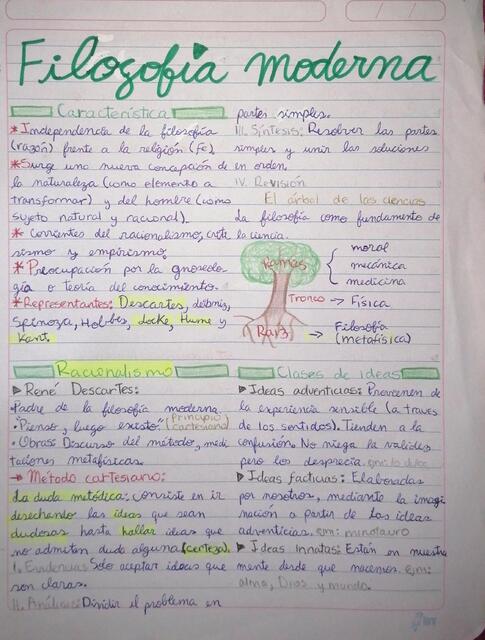 Filozofía moderna
Característica
*Independencia de la filosofía
(razón) frente a la religión (fe).
*Surge una nueva concepción de
la naturaleza (como elemento a
transformar) y del hombre (como
sujeto natural y racional).
* Corrientes del racionalismo,
sismo y empirismo,
*Preocupación por la gnoseolo-
gía o teoría del conocimiento.
*Representantes: Descartes, Leibniz,
Spinoza, Hobbes, Locke, Hume y
Kant.
partes simples.
III. Síntesis: Resolver las partes
simples y unir las soluciones
en orden.
IV. Revisión
El árbol de las ciencias
La filosofía como fundamento de
la ciencia.
Ramas
moral
mecánica
medicina
Tronco → Física
Raíz → Filosofía
(metafísica)
Racionalismo
▶ René Descartes:
•Padre de la filosofía moderna.
•"Pienso, luego existo" (Principio
cartesiano)
•Obras: Discurso del método, medi
taciones metafísicas.
→ Método cartesiano:
La duda metódica: consiste en ir
desechando las ideas que sean
dudosas hasta hallar ideas que
no admitan duda alguna (certeza).
I. Evidencias: Solo aceptar ideas que
son claras.
II. Análisis: Dividir el problema en
Clases de ideas
▶ Ideas adventicias: Provienen de
la experiencia sensible (a traves
de los sentidos). Tienden a la
confusión. No niega la validez
pero los desprecia.
▶ Ideas facticias: Elaboradas
por nosotros, mediante la imagi
nación a partir de las ideas
adventicias. em: minotauro
▶ Ideas Innatas: Están en nuestra
mente desde que nacemos. ejm:
alma, Dios y mundo.